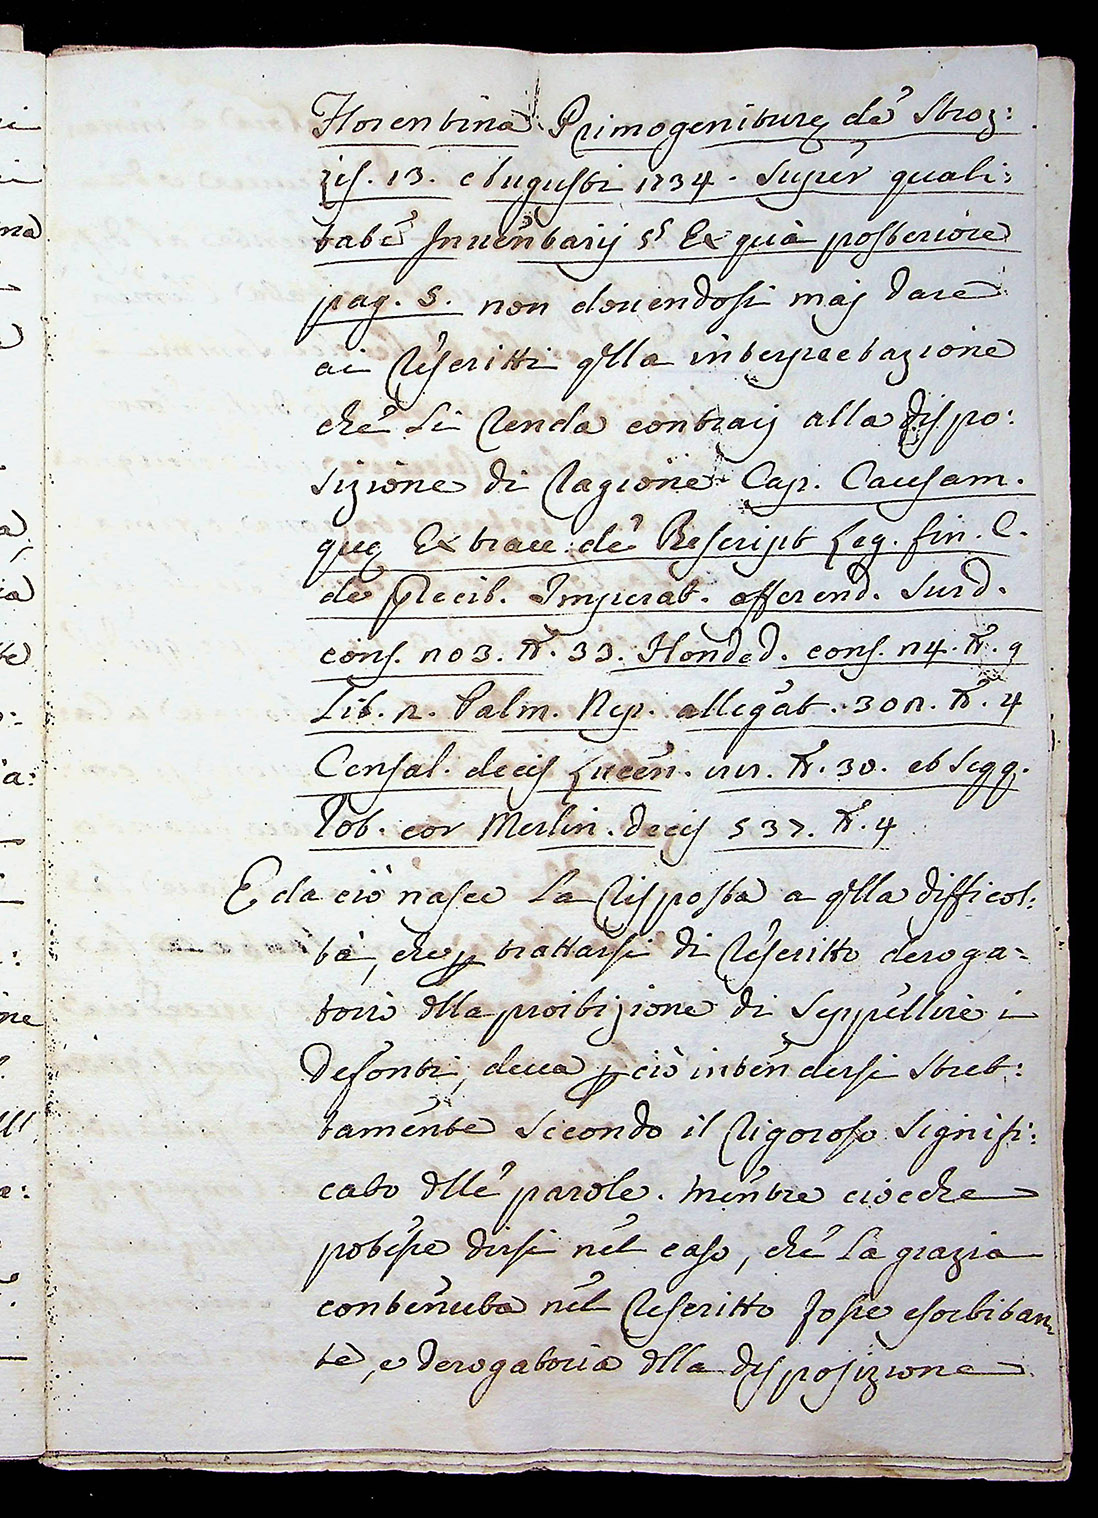 Florentina Primogenituræ de Stroz:
zis. 13. Augusti 1734. super quali:
tate Inventarij §. Ex quà posteriore
pag. 5. non dovendosi maj dare
ai Rescritti qlla interpretazione
che li renda contrarj alla dispo:
sizione di ragione Cap. Causam.
quæ Extrav. de Rescript Leg. fin. C.
de Precib. Imperat. offerend. Surd.
cons. 103. N. 33. Honded. cons. 14. N. 9
Lib. 1. Palm. Nep. allegat. 301. N. 4
Consal. decis Lucen. 111. N. 30. et seqq.
Rot. cor Merlin. Decis 537. N. 4
E da ciò nasce la risposta a qlla difficol:
tà, che p trattarsi di Rescritto deroga=
torio dlla proibizione di seppellire i
Defonti, deva p ciò intendersi stret:
tamente secondo il rigoroso signifi:
cato dlle parole. Mentre ciocche
potesse dirsi nel caso, che la grazia
contenuta nel Rescritto fosse esorbitan
te, e derogatoria dlla disposizione